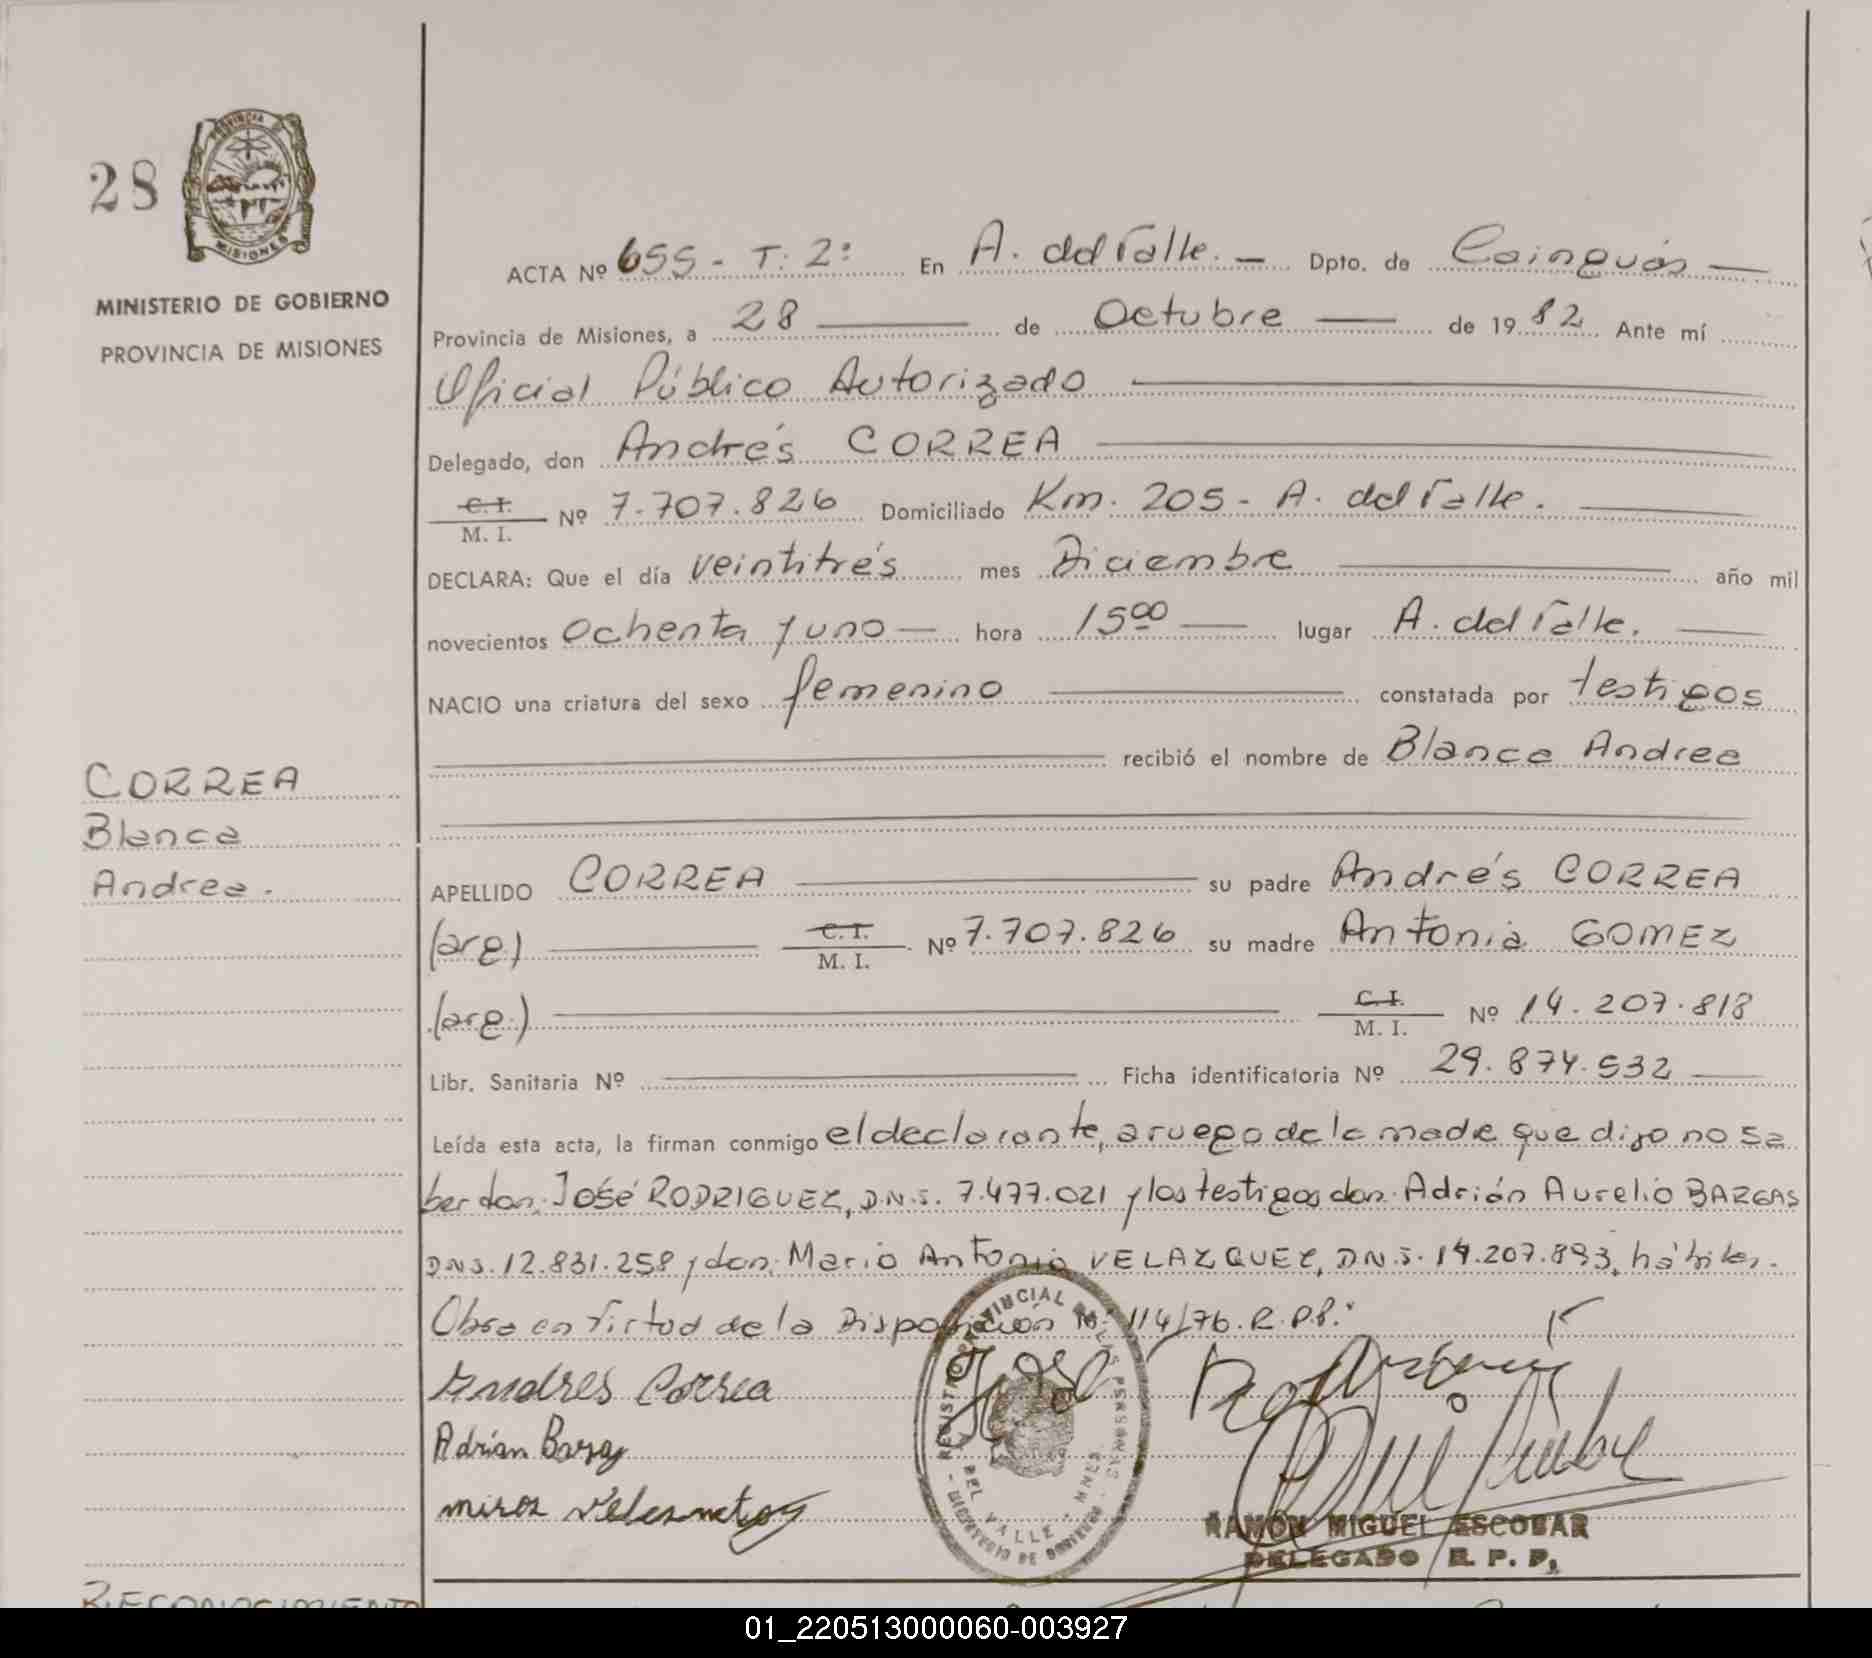 28
PROVINCIA DE
MISIONES
MINISTERIO DE GOBIERNO
PROVINCIA DE MISIONES
ACTA Nº 655 - T. 2º En A. del Valle. — Dpto. de Cainguás —
Provincia de Misiones, a 28 — de Octubre — de 19 82 Ante mí
Oficial Público Autorizado
Delegado, don Andrés CORREA
C. I. / M. I. Nº 7.707.826 Domiciliado Km. 205 - A. del Valle.
DECLARA: Que el día veintitrés mes Diciembre año mil
novecientos ochenta y uno — hora 15 00 — lugar A. del Valle.
NACIO una criatura del sexo femenino constatada por testigos
recibió el nombre de Blanca Andrea
CORREA
Blanca
Andrea.
APELLIDO CORREA su padre Andrés CORREA
(arg.) C. I. / M. I. Nº 7.707.826 su madre Antonia GOMEZ
(arg.) C. I. / M. I. Nº 14.207.818
Libr. Sanitaria Nº Ficha identificatoria Nº 29.874.532
Leída esta acta, la firman conmigo el declarante, a ruego de la madre que dijo no sa
ber don: José RODRIGUEZ, D.N.I. 7.477.021 y los testigos don: Adrián Aurelio BARGAS
DNI. 12.831.258 y don: Mario Antonio VELAZQUEZ, D.N.I. 14.207.893, hábiles.
Obra en Virtud de la Disposición Nº 114/76. R.P.P.
Andres Correa
José Rodriguez
Adrian Bargas
RAMON MIGUEL ESCOBAR
DELEGADO R. P. P.
RECONOCIMIENTO
01_220513000060-003927